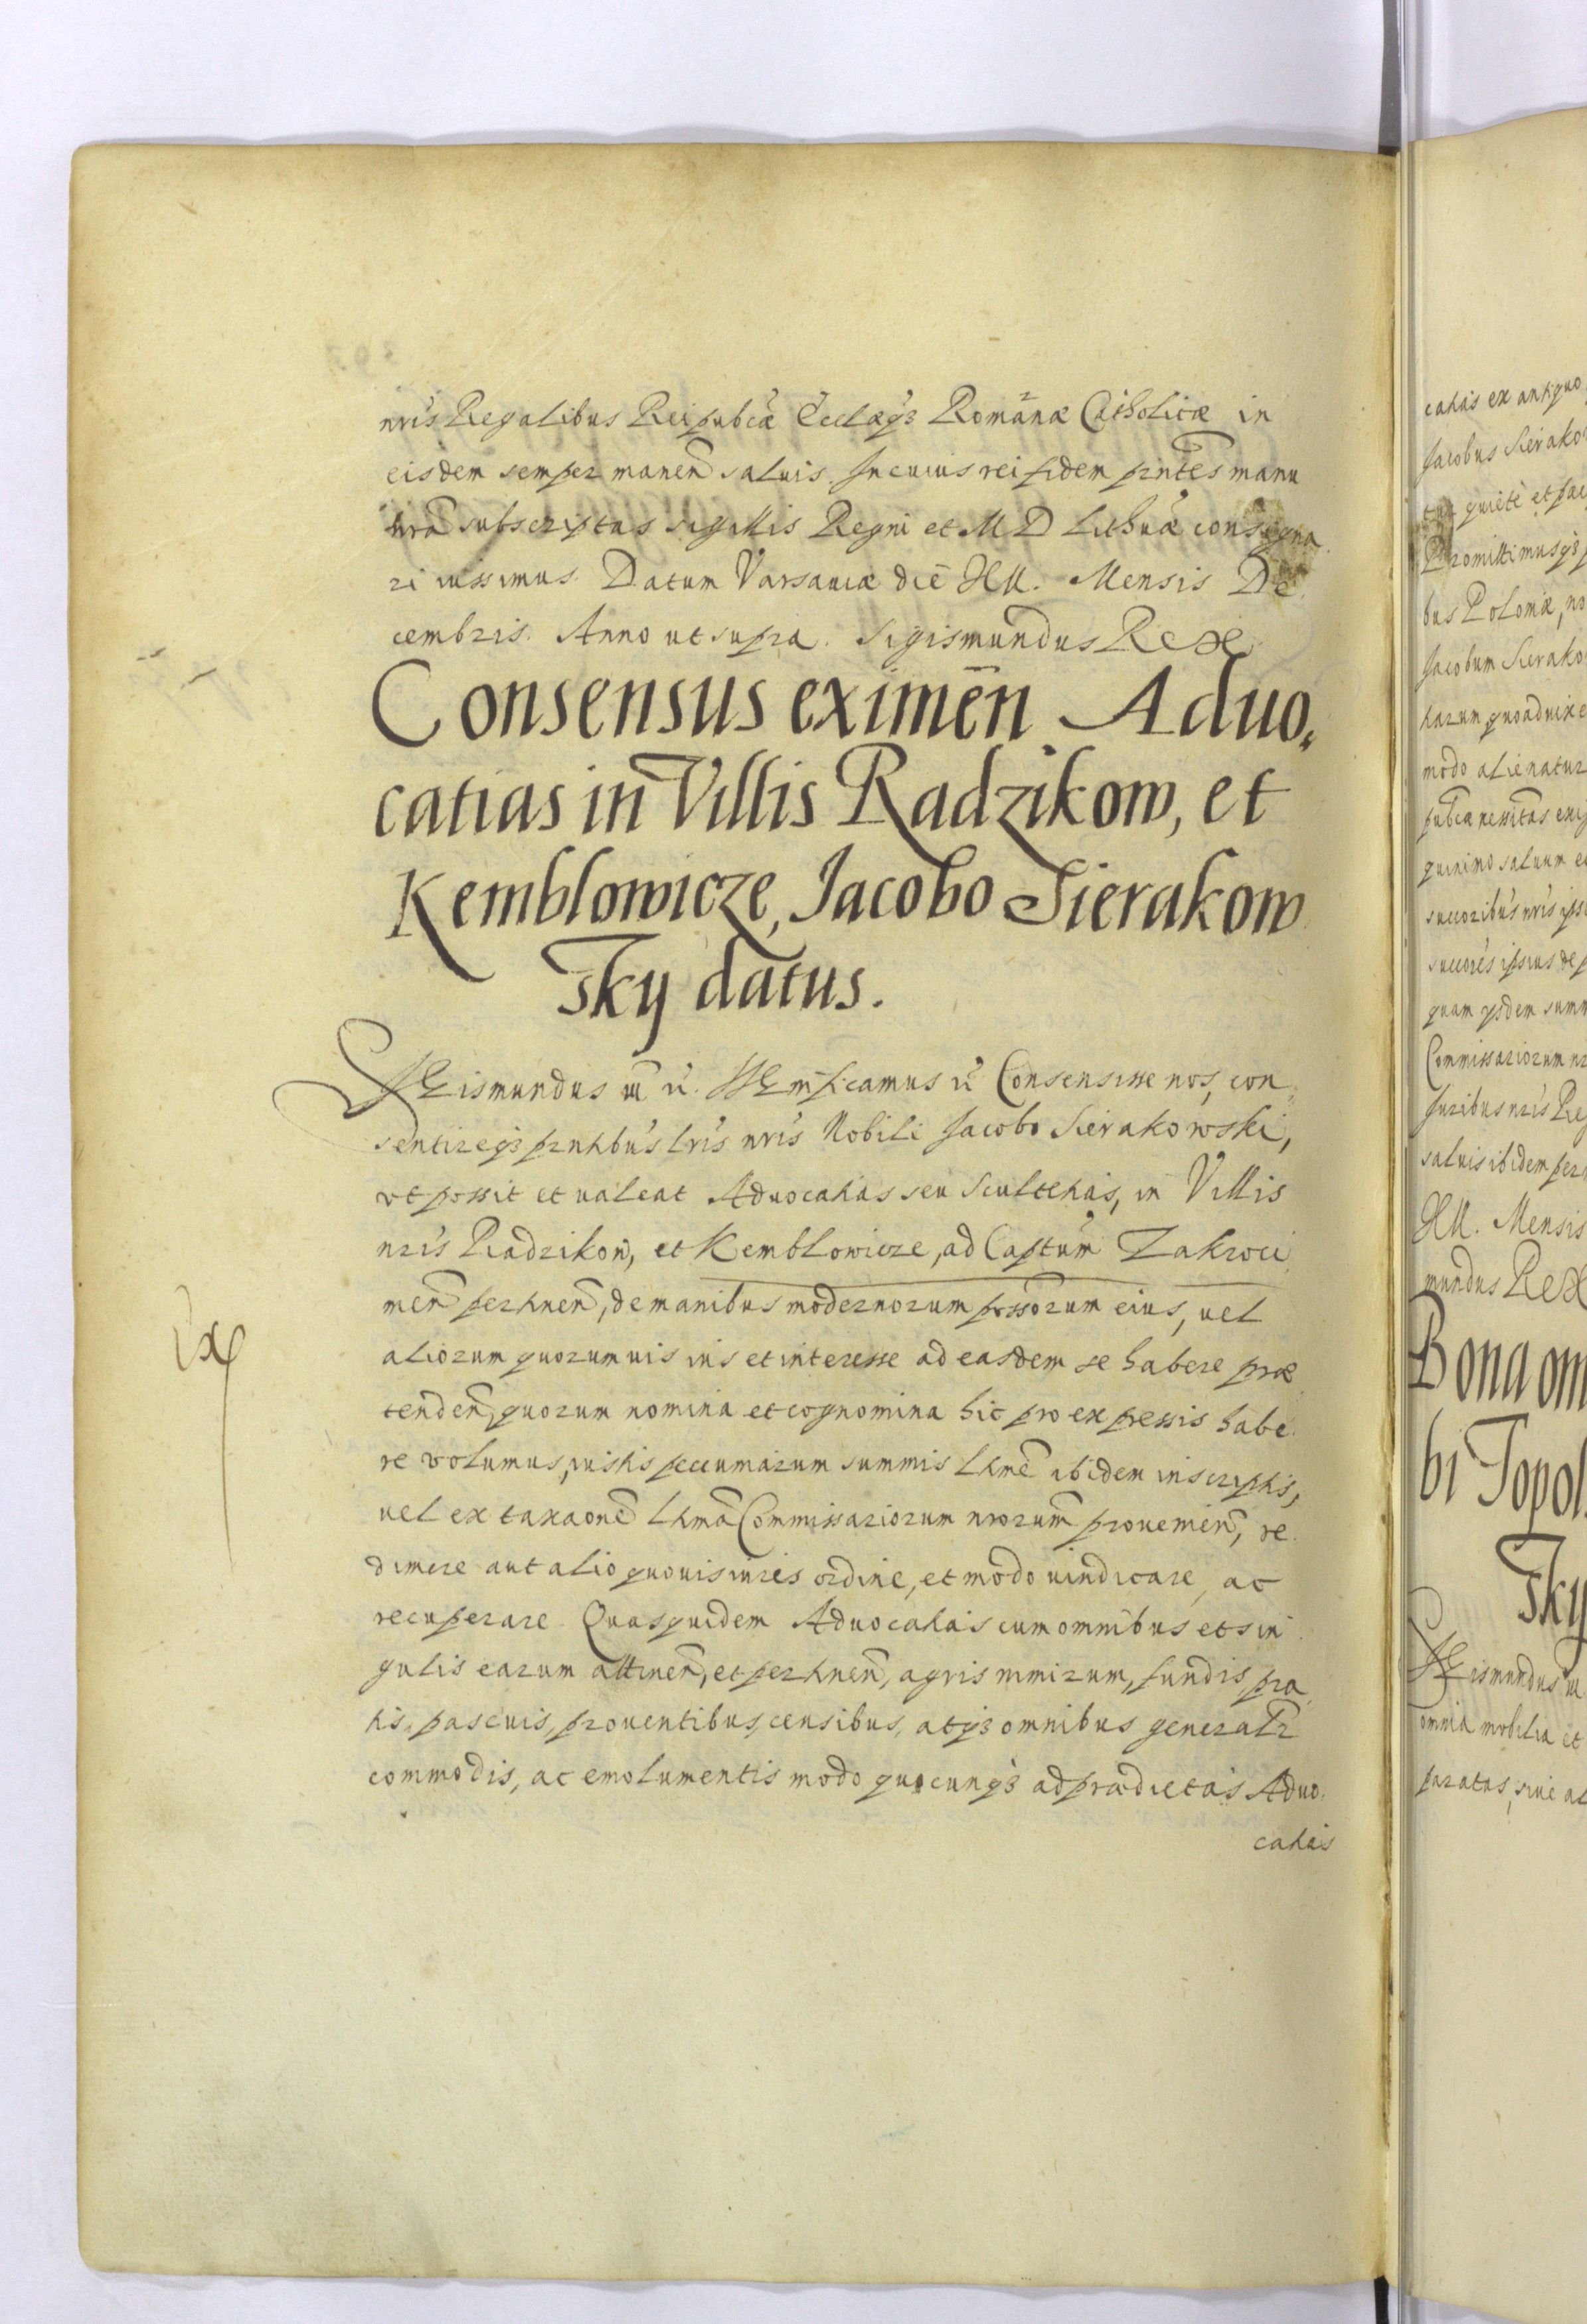 nris Regalibus Reipubcæ Ecclæq3 Romanæ Catholicæ in
eisdem semper manen saluis. In cuius rei fidem pñtes manu
nra subscriptas sigillis Regni et M D Lithuæ consigna
ri iussimus. Datum Varsauiæ die XII. Mensis De
cembris. Anno ut supra. Sigismundus Rex
Consensus eximēn Aduo
catias in Villis Radzikow, et
Kemblowicze, Jacobo Sierakow
sky datus.
Sigismundus Consensisse nos, con
sentireq3 pñtibus lris nris Nobili Jacobo Sierakowski,
vt possit et ualeat Aduocatias seu Scultetias, in Villis
nris Radzikow, et Kemblowicze, ad Castum Zakroci
men pertinen, de manibus modernorum possorum eius, uel
aliorum quorumuis ius et interesse ad easdem se habere præ
tenden, quorum nomina et cognomina hic pro expressis habe
re volumus, iustis pecuniarum summis ltme ibidem inscriptis,
uel ex taxaone ltma Commissariorum nrorum prouenien, re
dimere aut alio quouis iuris ordine, et modo uindicare, ac
recuperare. Quasquidem Aduocatias cum omnibus et sin
gulis earum attinen, et pertinen, agris nimirum, fundis, pra
tis, pascuis, prouentibus, censibus, atq3 omnibus generalr
commodis, ac emolumentis modo quocunq3 ad prædictas Aduo
catias
catias ex antiquo
Jacobus Sierako
quiete et pac
Promittimusq3
bus Poloniæ, no
Jacobum Sierako
tiarum, quoad uixe
modo alienatur
pubca nessitas exi
quinimo saluum
succoribus nris
succores ipsius de
quam ysdem summ
Commissariorum nr
Juribus nris Re
saluis ibidem per
XII. Mensis
mundus Rex
Bona om
bi Topol
sky
Sigismundus
omnia mobilia et
paratas, siue